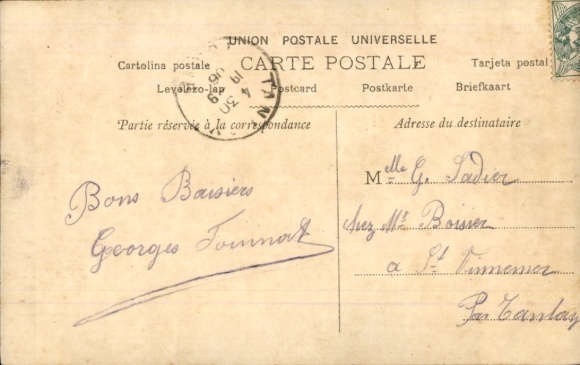 UNION POSTALE UNIVERSELLE
CARTE POSTALE
Cartolina postale
Tarjeta postal
Levelezo-lap
Postcard
Postkarte
Briefkaart
TANLAY
4 30
19 9
06
Partie réservée à la correspondance
Adresse du destinataire
Bons Baisiers
Georges
Melle G. Sadier
chez Mr Boisier
à St Vinnemer
Par Tanlay